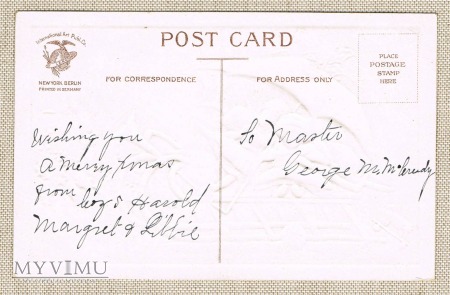 International Art Publ. Co.
NEW YORK BERLIN
PRINTED IN GERMANY
POST CARD
FOR CORRESPONDENCE
FOR ADDRESS ONLY
PLACE
POSTAGE
STAMP
HERE
Wishing you
a Merry Xmas
from Harold
Margret & Libbie
To Master
George M. McCreudy
MYVIMU